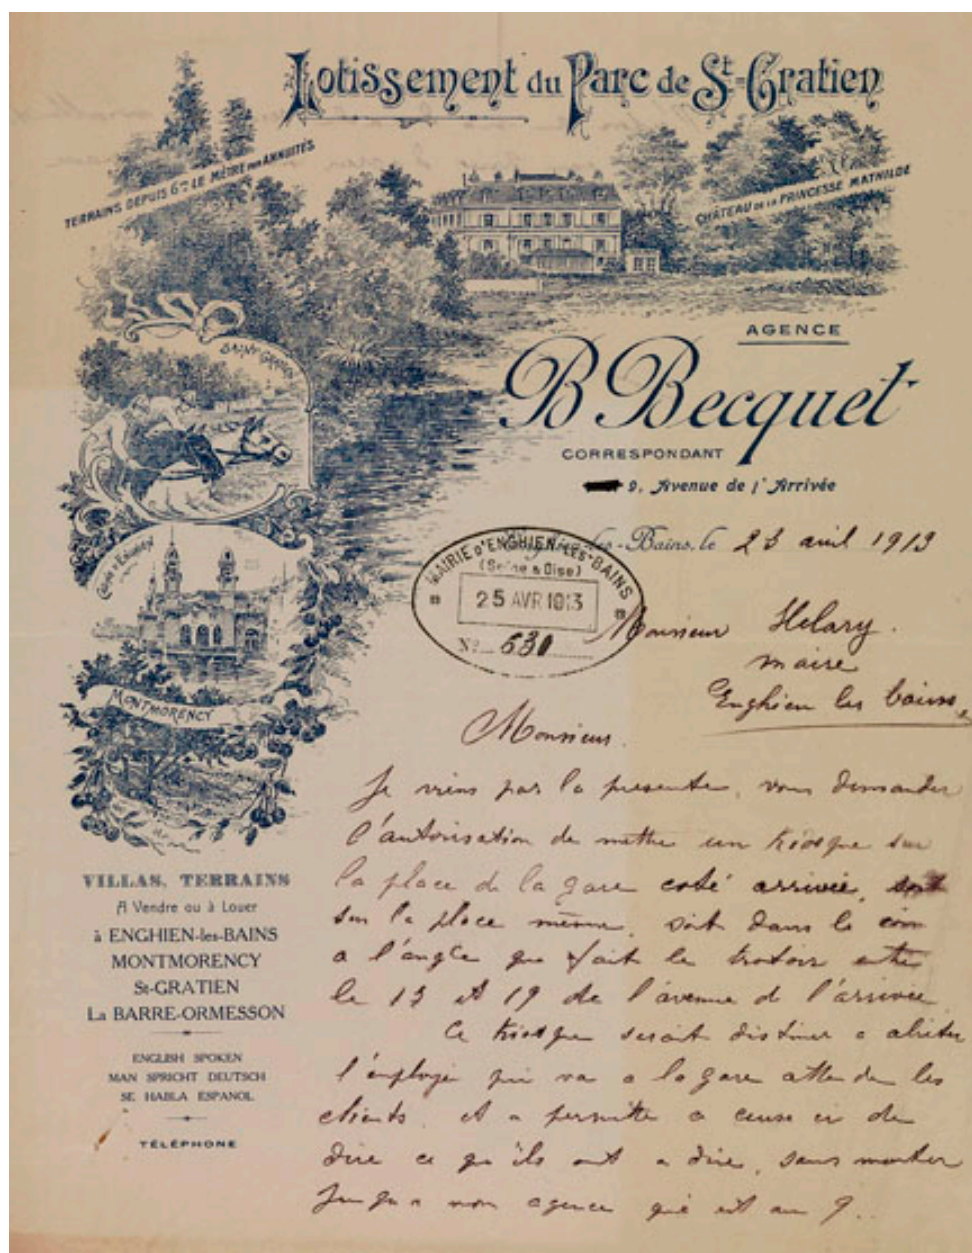 Lotissement du Parc de St-Gratien
TERRAINS DEPUIS 6 LE MÈTRE PAR ANNUITÉS
CHÂTEAU DE LA PRINCESSE MATHILDE
AGENCE
B Becquet
CORRESPONDANT
9, Avenue de l'Arrivée
SAINT GRATIEN
les-Bains, le 23 avril 1913
MAIRIE D'ENGHIEN-LES-BAINS
(Seine & Oise)
25 AVR 1913
No 630
Monsieur Helary.
maire
Enghien les bains
MONTMORENCY
Monsieur.
Je viens par la presente, vous demander
l'autorisation de mettre un kiosque sur
la place de la gare coté arrivée, soit
sur la place même, soit dans le coin
a l'angle que fait le trotoir entre
le 13 et 19 de l'avenue de l'arrivée
Ce kiosque serait distiner a abriter
l'employé qui va a la gare attendre les
clients et a permettre a ceux ci de
dire ce qu'ils ont a dire, sans monter
jusqu'a mon agence qui est au 9..
VILLAS, TERRAINS
A Vendre ou à Louer
à ENGHIEN-les-BAINS
MONTMORENCY
St-GRATIEN
La BARRE-ORMESSON
ENGLISH SPOKEN
MAN SPRICHT DEUTSCH
SE HABLA ESPANOL
TÉLÉPHONE